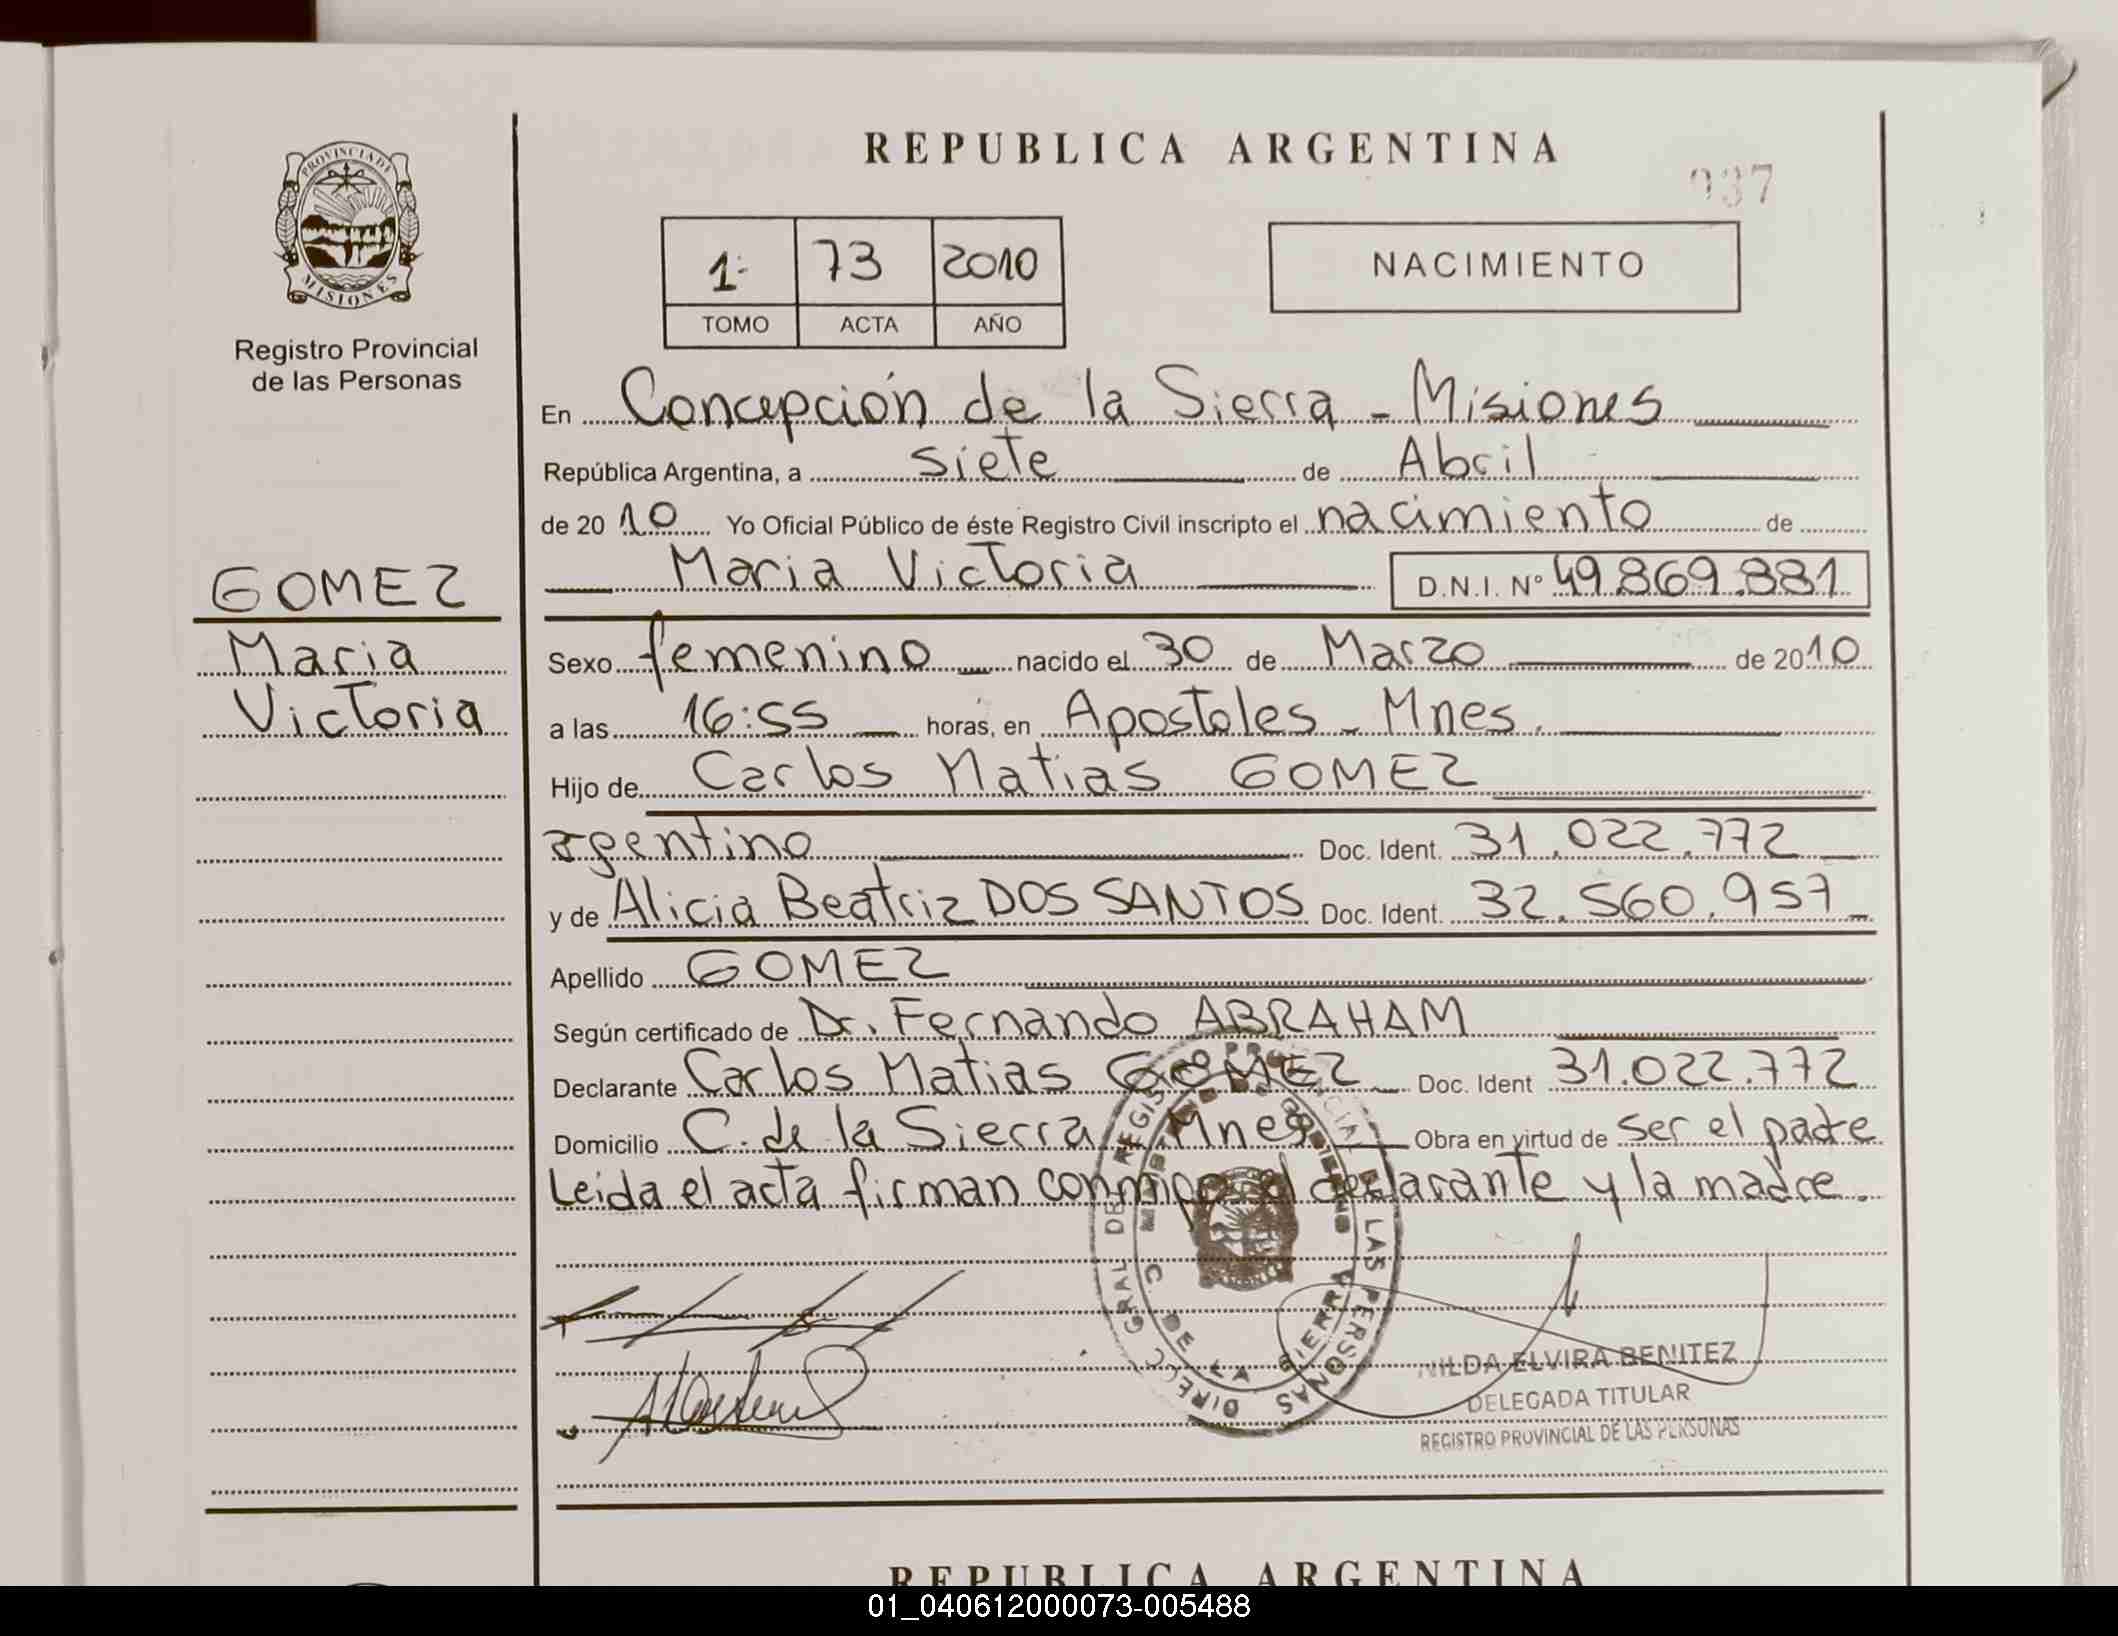 REPUBLICA ARGENTINA
037
PROVINCIA DE
MISIONES
Registro Provincial
de las Personas
1º 73 2010
TOMO ACTA AÑO
NACIMIENTO
En Concepción de la Sierra - Misiones
República Argentina, a siete de Abril
de 2010 Yo Oficial Público de éste Registro Civil inscripto el nacimiento de
Maria Victoria D.N.I. Nº 49.869.881
GOMEZ
Maria
Victoria
Sexo femenino nacido el 30 de Marzo de 2010
a las 16:55 horas, en Apostoles - Mnes.
Hijo de Carlos Matias GOMEZ
argentino Doc. Ident. 31.022.772
y de Alicia Beatriz DOS SANTOS Doc. Ident. 32.560.957
Apellido GOMEZ
Según certificado de Dr. Fernando ABRAHAM
Declarante Carlos Matias GOMEZ Doc. Ident 31.022.772
Domicilio C. de la Sierra Mnes Obra en virtud de ser el padre
Leida el acta firman conmigo el declarante y la madre.
DE LAS PERSONAS
C. DE LA SIERRA
HILDA ELVIRA BENITEZ
DELEGADA TITULAR
REGISTRO PROVINCIAL DE LAS PERSONAS
REPUBLICA ARGENTINA
01_040612000073-005488